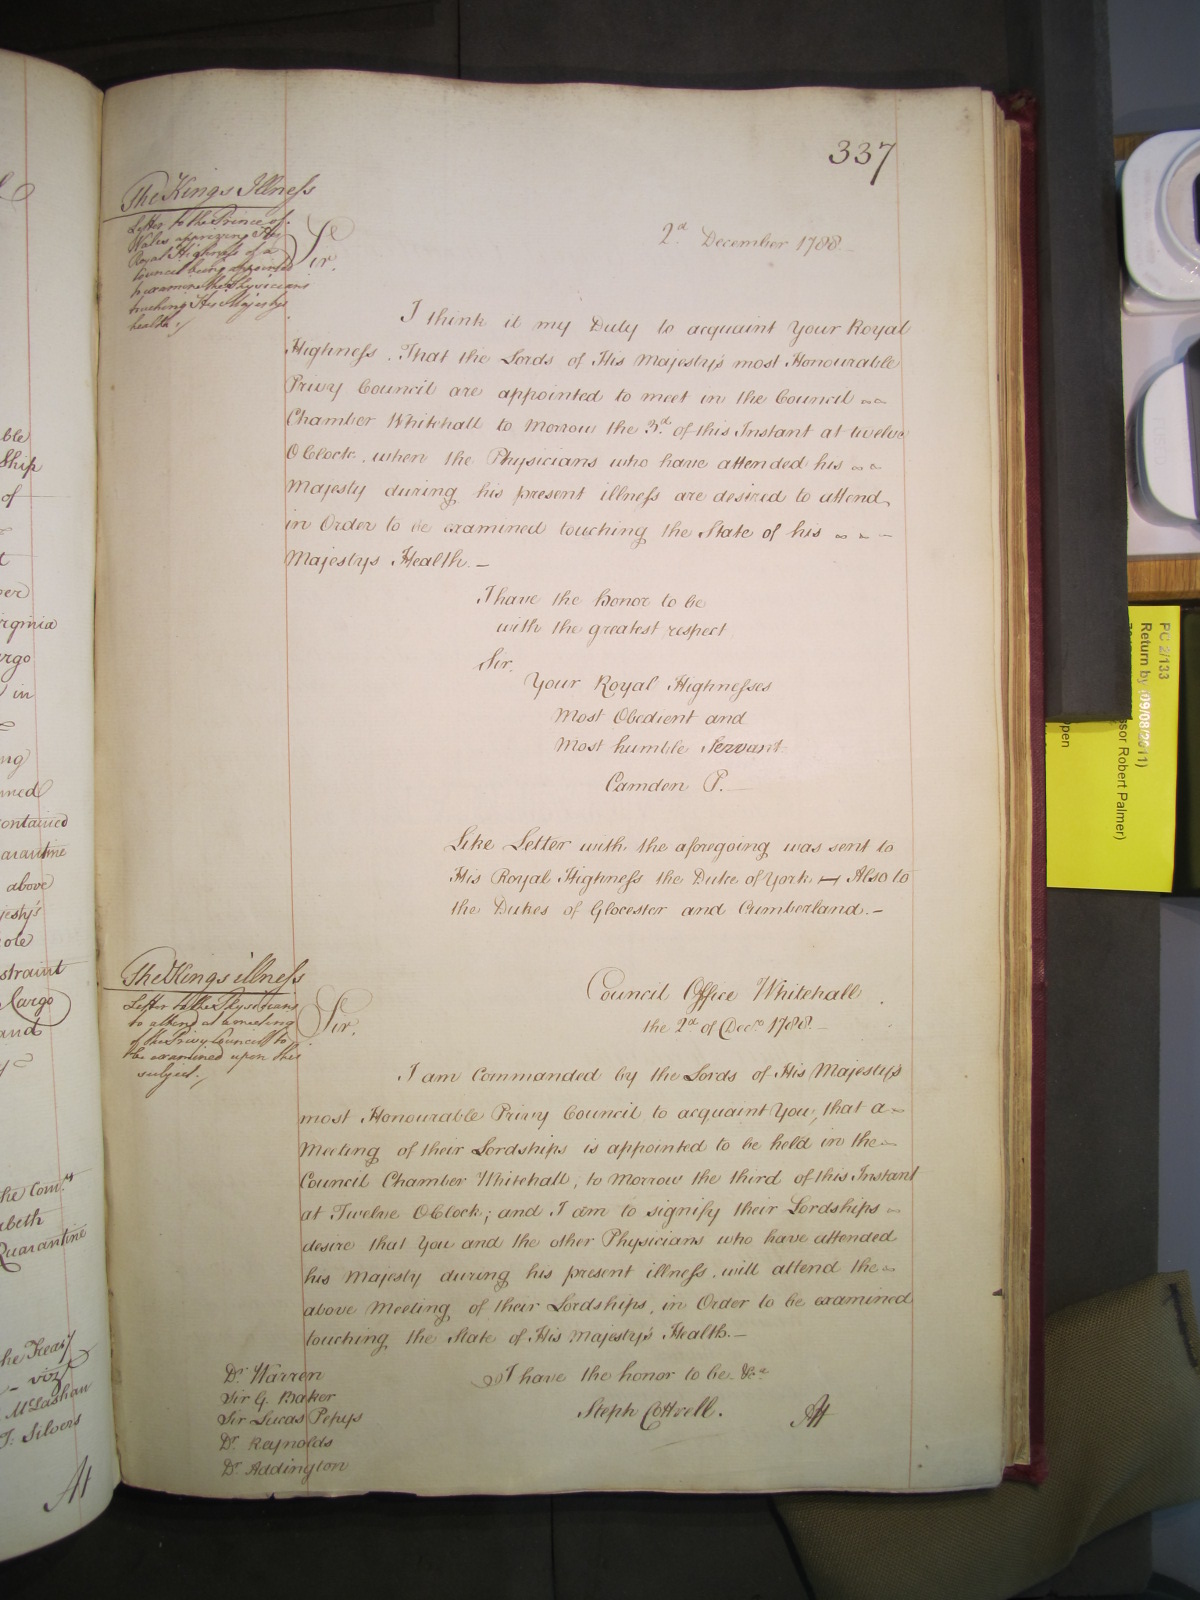 337
The Kings Illness
Letter to the Prince of
Wales apprizing His
Royal Highness of a
Council being appointed
to examine the Physicians
touching His Majestys
health;/
2.d December 1788
Sir.
I think it my Duty to acquaint Your Royal
Highness. That the Lords of His Majesty's most Honourable
Privy Council are appointed to meet in the Council
Chamber Whitehall to Morrow the 3.d of this Instant at twelve
OClock. when the Physicians who have attended his
Majesty during his present illness are desired to attend,
in Order to be examined touching the State of his
Majestys Health. —
I have the honor to be
with the greatest respect
Sir.
Your Royal Highnesses
Most Obedient and
Most humble Servant
Camden P. —
Like Letter with the aforegoing was sent to
His Royal Highness the Duke of York — Also to
the Dukes of Glocester and Cumberland. —
The Kings illness
Letter to the Physicians
to attend at a meeting
of the Privy Council to
be examined upon this
subject./
Council Office Whitehall
the 2.d of Dec.r 1788 —
Sir.
I am Commanded by the Lords of His Majesty's
most Honourable Privy Council to acquaint You, that a
Meeting of their Lordships is appointed to be held in the
Council Chamber Whitehall, to Morrow the third of this Instant
at Twelve OClock; and I am to signify their Lordships
desire that You and the other Physicians who have attended
his Majesty during his present illness, will attend the
above Meeting of their Lordships, in Order to be examined
touching the State of His Majesty's Health. —
I have the honor to be &ca
Steph Cottrell.
Att
Dr Warren
Sir G. Baker
Sir Lucas Pepys
Dr Reynolds
Dr Addington
ble
Ship
of
rginia
argo
in
ontained
arantine
above
jesty's
straint
Cargo
and
the Com.rs
abeth
Quarantine
the Treas.y
viz.t
McLashan
J: Silvers
At
PC 2/133
Return by (09/08/2011)
ssor Robert Palmer)
pen